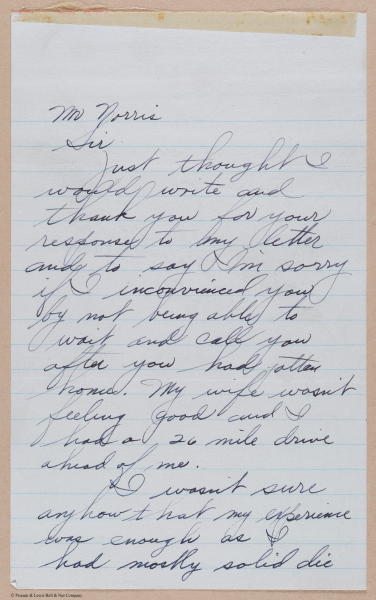 Mr Norris
Sir
Just thought I
would write and
thank you for your
response to my letter
and to say I'm sorry
if I inconvienced you
by not being able to
wait and call you
after you had gotten
home. My wife wasn't
feeling good and I
had a 26 mile drive
ahead of me.
I wasn't sure
anyhow that my experience
was enough as I
had mostly solid die
© Penasak & Lorain Bolt & Nut Company